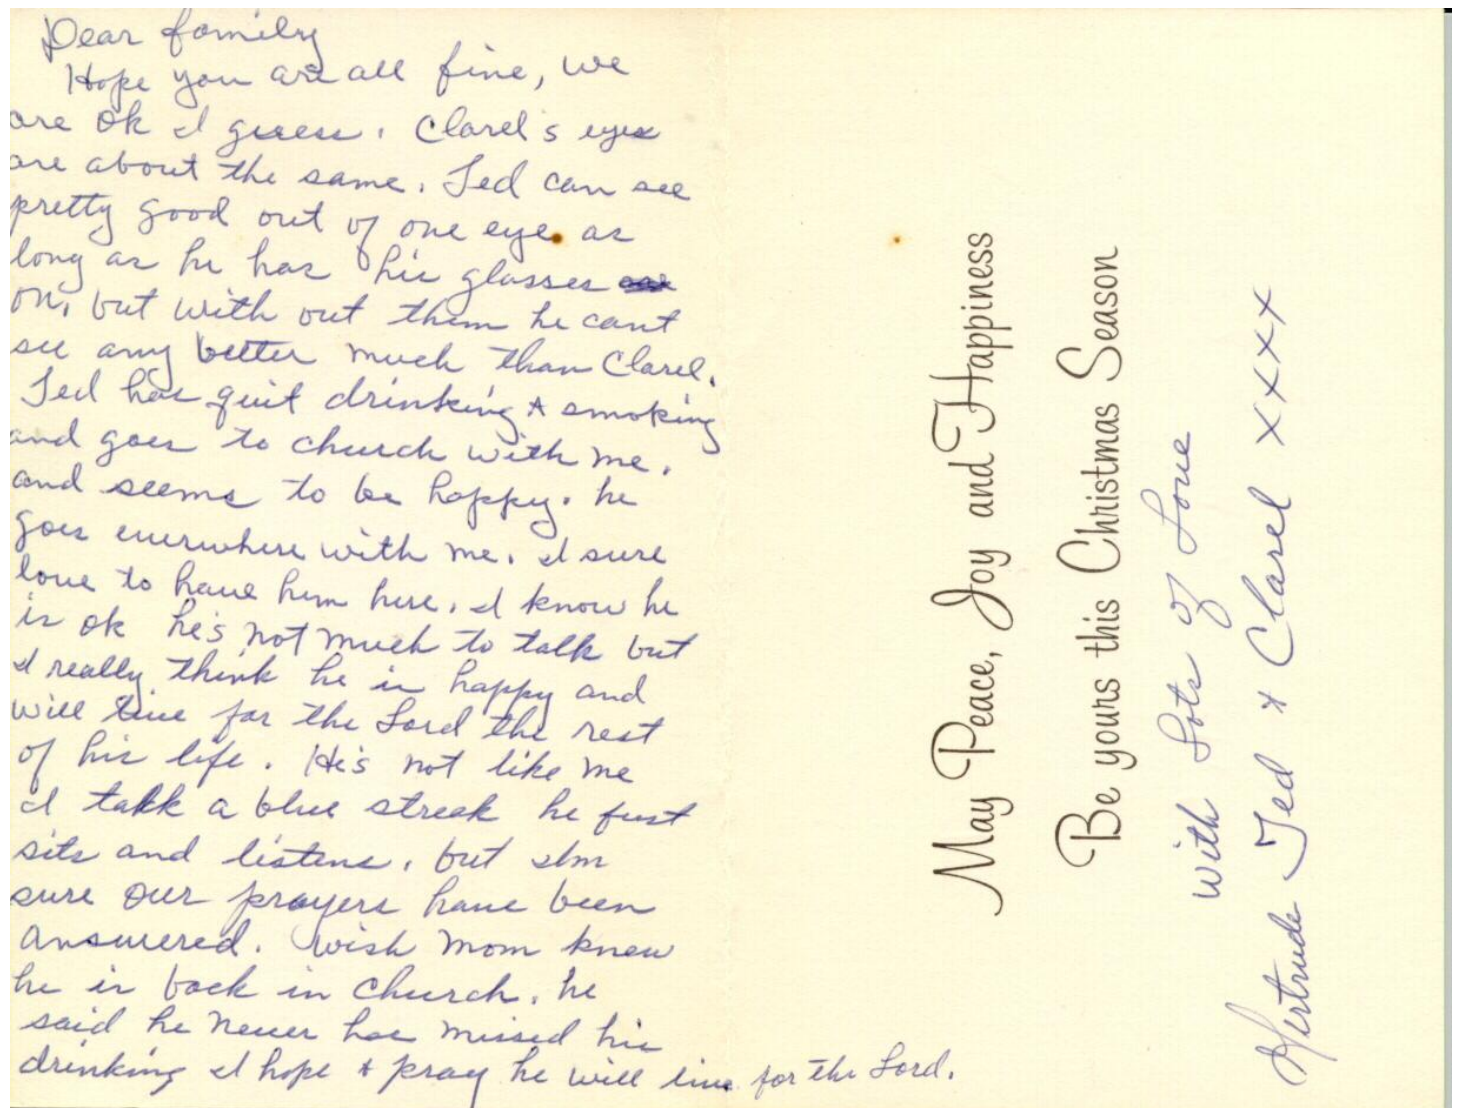 Dear family
Hope you are all fine, we
are ok I guess. Clarel's eyes
are about the same. Ted can see
pretty good out of one eye as
long as he has his glasses
on, but with out them he cant
see any better much than Clarel.
Ted has quit drinking & smoking
and goes to church with me.
and seems to be happy. he
goes everwhere with me. I sure
love to have him here. I know he
is ok he's not much to talk but
I really think he is happy and
will live for the Lord the rest
of his life. He's not like me
I talk a blue streek he just
sits and listens. but I'm
sure our prayers have been
answered. wish mom knew
he is back in church. he
said he never has missed his
drinking I hope & pray he will live for the Lord.
May Peace, Joy and Happiness
Be yours this Christmas Season
with Lots of Love
Gertrude Ted & Clarel xxxx